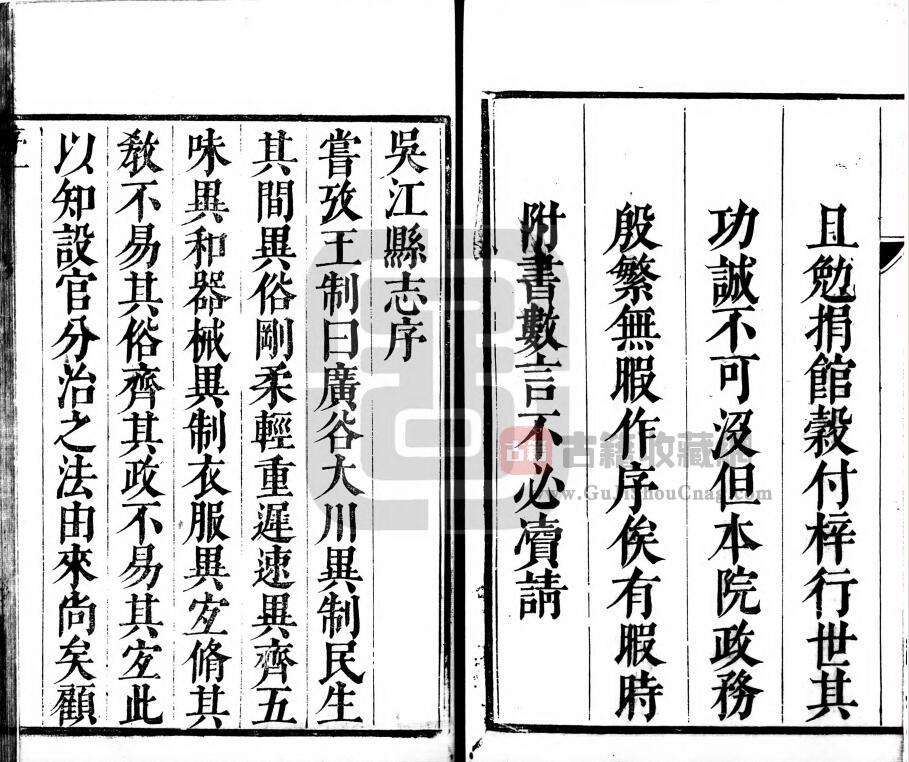 且勉捐館穀付梓行世其
功誠不可沒但本院政務
殷繁無暇作序俟有暇時
附書數言不必瀆請
吳江縣志序
嘗攷王制曰廣谷大川異制民生
其間異俗剛柔輕重遲速異齊五
味異和器械異制衣服異宐脩其
敎不易其俗齊其政不易其宐此
以知設官分治之法由來尚矣顧
序一
古籍
古籍收藏
www.GuJiShouCnag.com